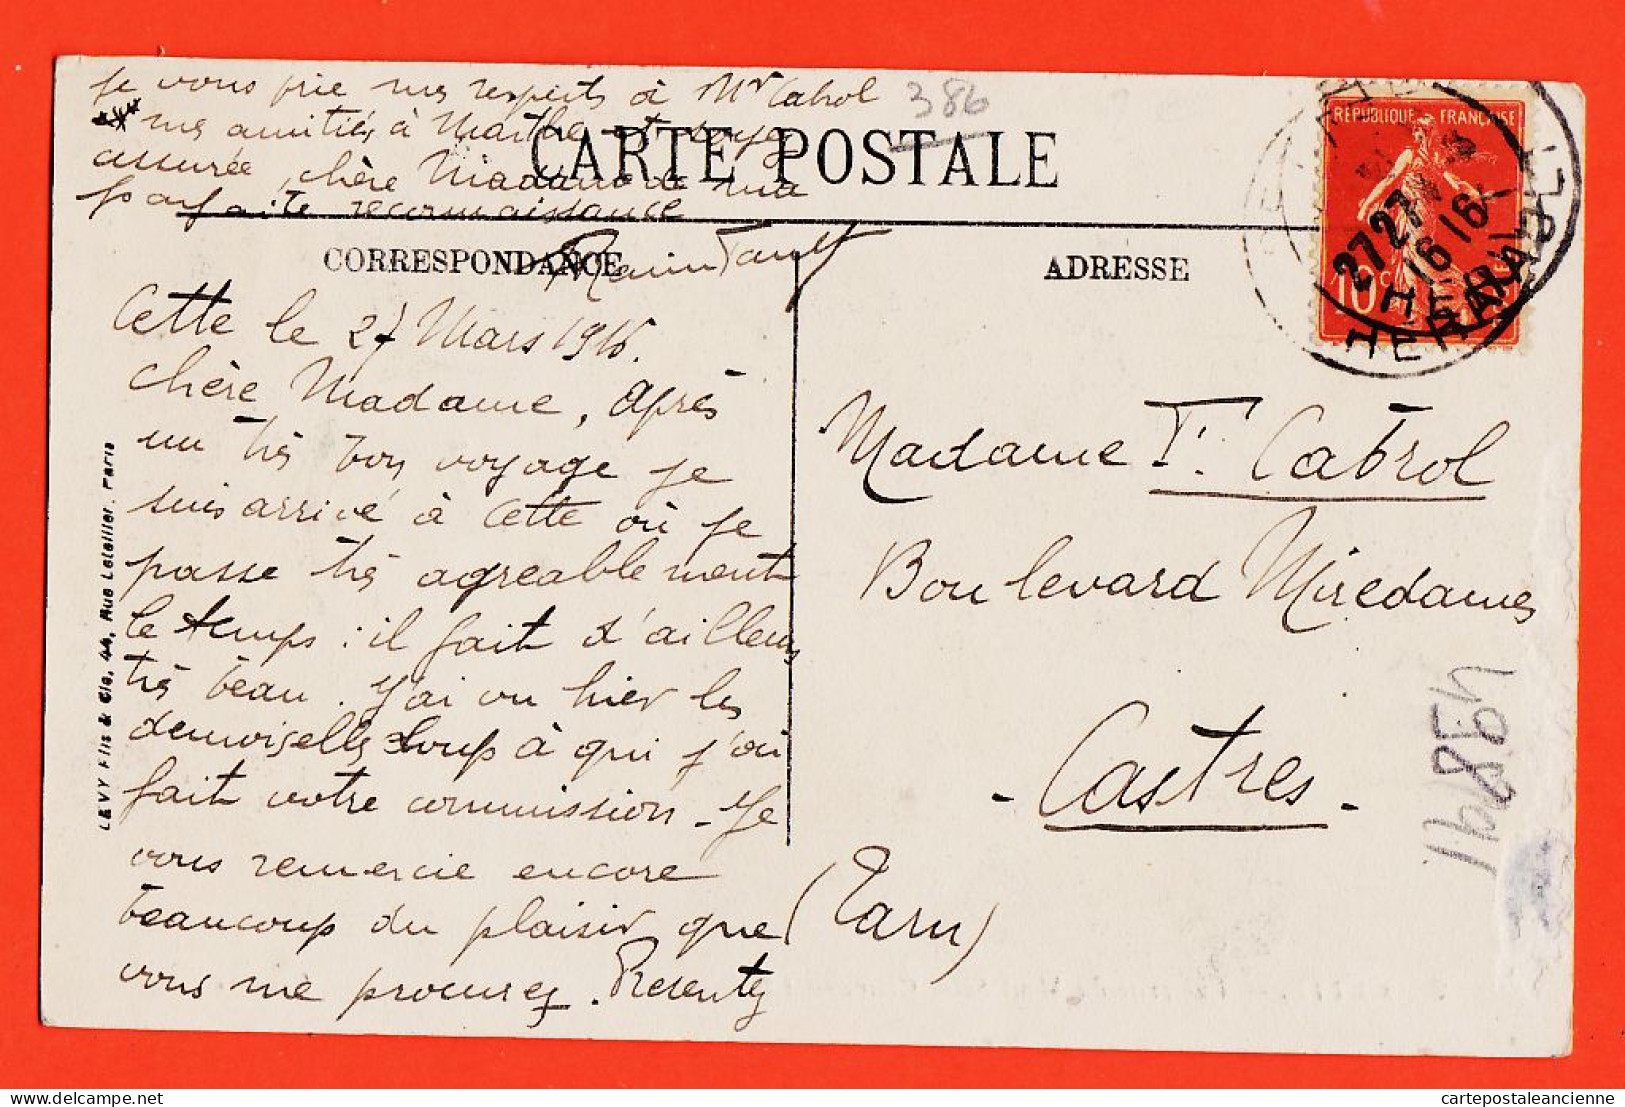 je vous prie mes respects à Mr Cabrol
mes amitiés à Marthe et soyez
assurée, chère Madame de ma
parfaite reconnaissance
386
CARTE POSTALE
CORRESPONDANCE
ADRESSE
RÉPUBLIQUE FRANÇAISE
10c
27 27
16 16
HERAULT
Cette le 27 Mars 1916.
Chère Madame, Après
un très bon voyage je
suis arrivé à Cette où je
passe très agreablement
le temps : il fait d'ailleurs
très beau. J'ai vu hier les
demoiselles Loup à qui j'ai
fait votre commission. Je
vous remercie encore
beaucoup du plaisir que
vous me procurez. Presentez
Madame F. Cabrol
Boulevard Miredames
- Castres -
(Tarn)
LEVY Fils & Cie, 44, Rue Letellier, Paris
cartepostaleancienne.com